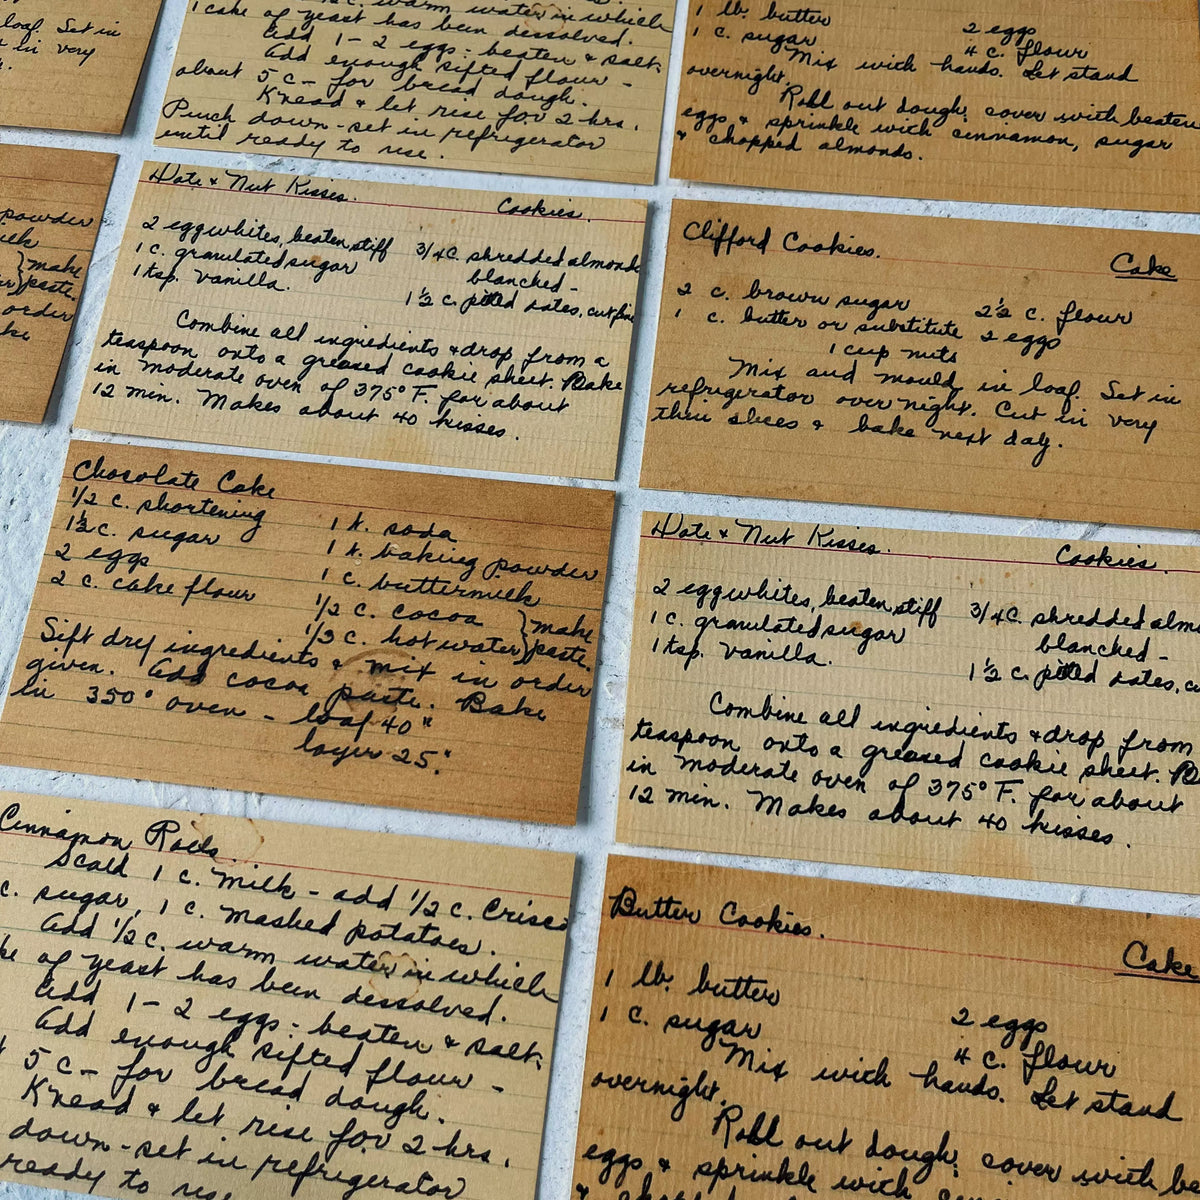 loaf. Set in
in very
powder
make
paste.
order
c. warm water in which
1 cake of yeast has been dissolved.
Add 1-2 eggs - beaten & salt.
Add enough sifted flour -
about 5 c - for bread dough.
Knead & let rise for 2 hrs.
Punch down - set in refrigerator
until ready to use.
1 lb. butter
1 c. sugar
2 eggs
4 c. flour
Mix with hands. Let stand
overnight.
Roll out dough, cover with beaten
eggs & sprinkle with cinnamon, sugar
& chopped almonds.
Date & Nut Kisses.
Cookies.
2 egg whites, beaten stiff
1 c. granulated sugar
1 tsp. vanilla.
3/4 c. shredded almonds
blanched -
1½ c. pitted dates, cut fine
Combine all ingredients & drop from a
teaspoon onto a greased cookie sheet. Bake
in moderate oven of 375° F. for about
12 min. Makes about 40 kisses.
Clifford Cookies.
Cake
2 c. brown sugar
1 c. butter or substitute
2½ c. flour
2 eggs
1 cup nuts
Mix and mould in loaf. Set in
refrigerator over night. Cut in very
thin slices & bake next day.
Chocolate Cake
1/2 c. shortening
1½ c. sugar
2 eggs
2 c. cake flour
1 t. soda
1 t. baking powder
1 c. buttermilk
1/2 c. cocoa
1/3 c. hot water
} make
paste.
Sift dry ingredients & mix in order
given. Add cocoa paste. Bake
in 350° oven - loaf 40"
layer 25".
Date & Nut Kisses.
Cookies.
2 egg whites, beaten stiff
1 c. granulated sugar
1 tsp. vanilla.
3/4 c. shredded alm
blanched -
1½ c. pitted dates, cu
Combine all ingredients & drop from
teaspoon onto a greased cookie sheet. B
in moderate oven of 375° F. for about
12 min. Makes about 40 kisses.
Cinnamon Rolls.
Scald 1 c. milk - add 1/2 c. Crisc
c. sugar, 1 c. mashed potatoes.
Add 1/2 c. warm water in which
ke of yeast has been dissolved.
Add 1-2 eggs - beaten & salt.
Add enough sifted flour -
5 c - for bread dough.
Knead & let rise for 2 hrs.
down - set in refrigerator
ready to use.
Butter Cookies.
Cake
1 lb. butter
1 c. sugar
2 eggs
4 c. flour
Mix with hands. Let stand
overnight.
Roll out dough, cover with be
eggs & sprinkle with